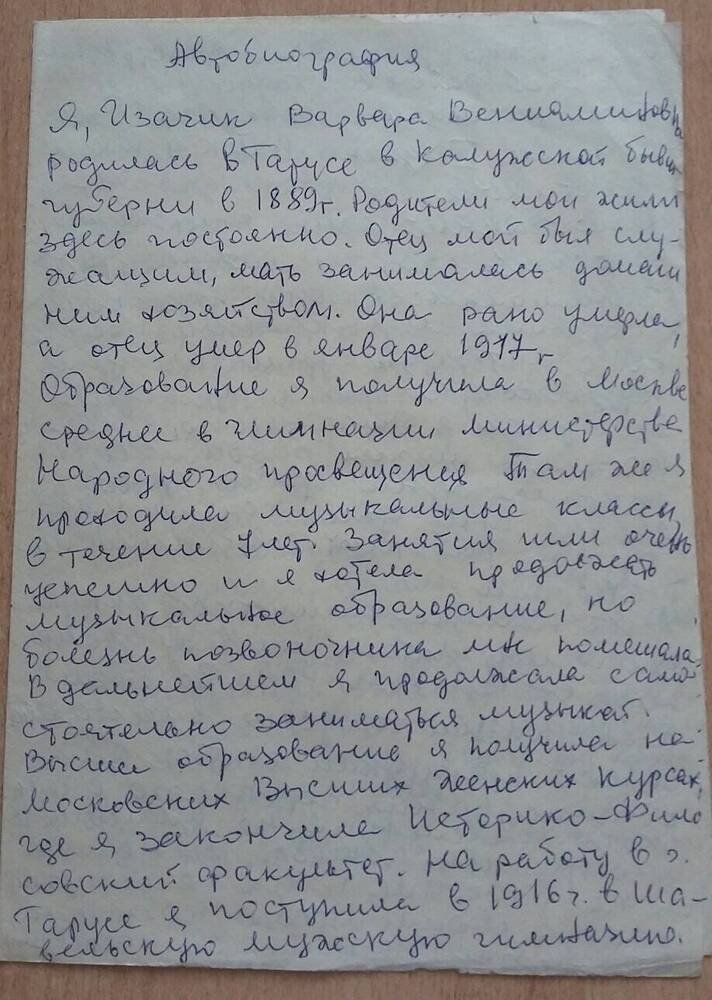 Автобиография
Я, Изачик Варвара Вениаминовна
родилась в Тарусе в Калужской бывш
губерни в 1889г. Родители мои жили
здесь постоянно. Отец мой был слу-
жащим, мать занималась домаш
ним хозяйством. Она рано умерла,
а отец умер в январе 1917г.
Образование я получила в Москве
среднее в гимназии министерства
Народного просвещения Там же я
проходила музыкальные классы
в течение 7лет. Занятия шли очень
успешно и я хотела продолжать
музыкальное образование, но
болезнь позвоночника мне помешала.
В дальнейшем я продолжала само
стоятельно заниматься музыкой.
Высшее образование я получила на
Московских Высших Женских курсах,
где я закончила Историко-Фило
совский факультет. На работу в г.
Тарусе я поступила в 1916г. в Ша-
вельскую мужскую гимназию.